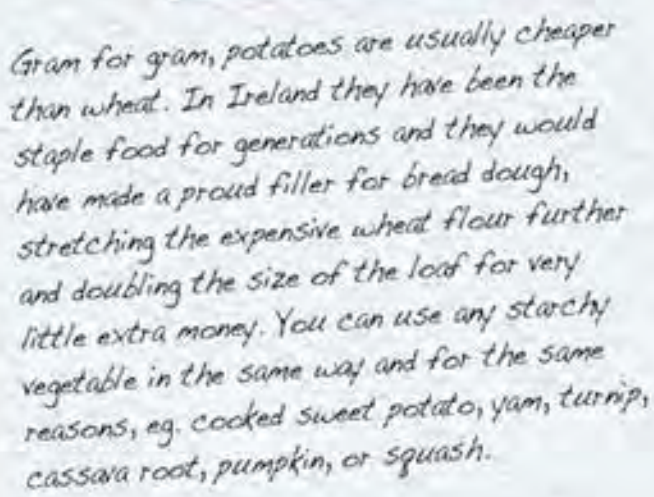 Gram for gram, potatoes are usually cheaper
than wheat. In Ireland they have been the
staple food for generations and they would
have made a proud filler for bread dough,
stretching the expensive wheat flour further
and doubling the size of the loaf for very
little extra money. You can use any starchy
vegetable in the same way and for the same
reasons, eg. cooked sweet potato, yam, turnip,
cassava root, pumpkin, or squash.